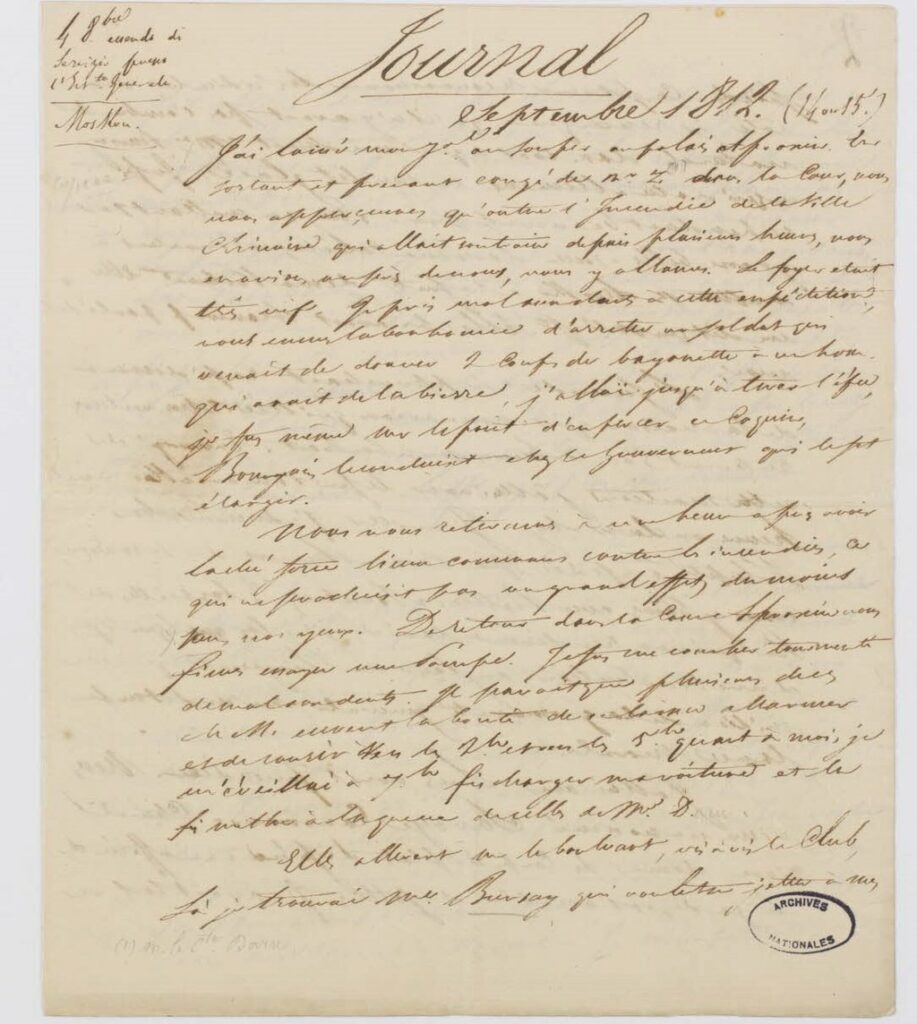 4 8bre essendo di
Servizio presso
l'Int.te Generale
Moskou.
Journal
Septembre 1812. (14 ou 15.)
J'ai laissé mon g.l au souper au palais Apraxin. En
sortant et prenant congé de Mr Z (1) dans la Cour, nous
nous apperçumes qu'outre l'Incendie de la ville
Chinoise qui allait son train depuis plusieurs heures, nous
en avions auprès de nous, nous y allames. Le foyer etait
très vif. Je pris mal aux dents à cette expédition,
nous eumes la bonhomie d'arreter un soldat qui
venait de donner 2 coups de bayonette à un hom.
qui avait de la bierre, j'allai jusqu'à tirer l'épée,
je fus même sur le point d'en percer ce Coquin,
Bourgeois le conduisit chez le Gouverneur qui le fit
élargir.
Nous nous retirames à une heure après avoir
laché force lieux communs contre les incendies, ce
qui ne produisit pas un grand effet, du moins
pour nos yeux. De retour dans la Cour Apraxin nous
fimes essayer une Pompe. Je fus me coucher tourmenté
de mal aux dents. Il parait que plusieurs de ces
MM. eurent la bonté de se laisser allarmer
et de courir vers les 2h et vers les 5.h quant à moi, je
m'éveillai à 7.h fis charger ma voiture et la
fis mettre à la queue de celles de Mr. D.
Elles allerent sur le boulevart, vis à vis le Club,
là je trouvai Mme Bursay qui voulut se jetter à mes
(1) M. le Cte
ARCHIVES
NATIONALES